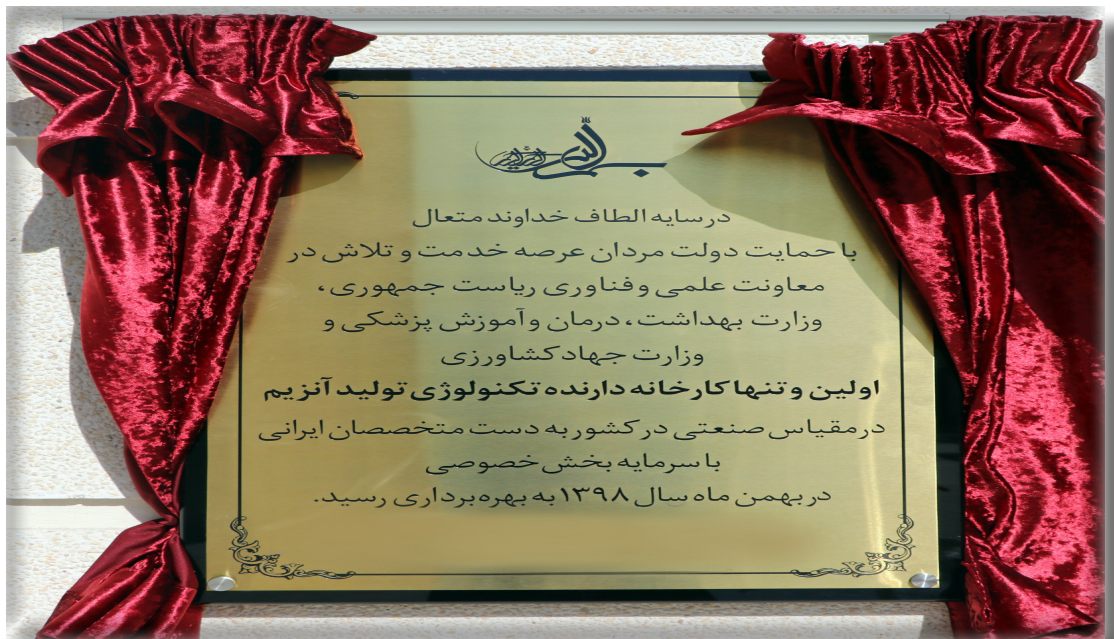 بسم الله الرحمن الرحیم
در سایه الطاف خداوند متعال
با حمایت دولت مردان عرصه خدمت و تلاش در
معاونت علمی و فناوری ریاست جمهوری،
وزارت بهداشت، درمان و آموزش پزشکی و
وزارت جهاد کشاورزی
اولین و تنها کارخانه دارنده تکنولوژی تولید آنزیم
در مقیاس صنعتی در کشور به دست متخصصان ایرانی
با سرمایه بخش خصوصی
در بهمن ماه سال ۱۳۹۸ به بهره برداری رسید.